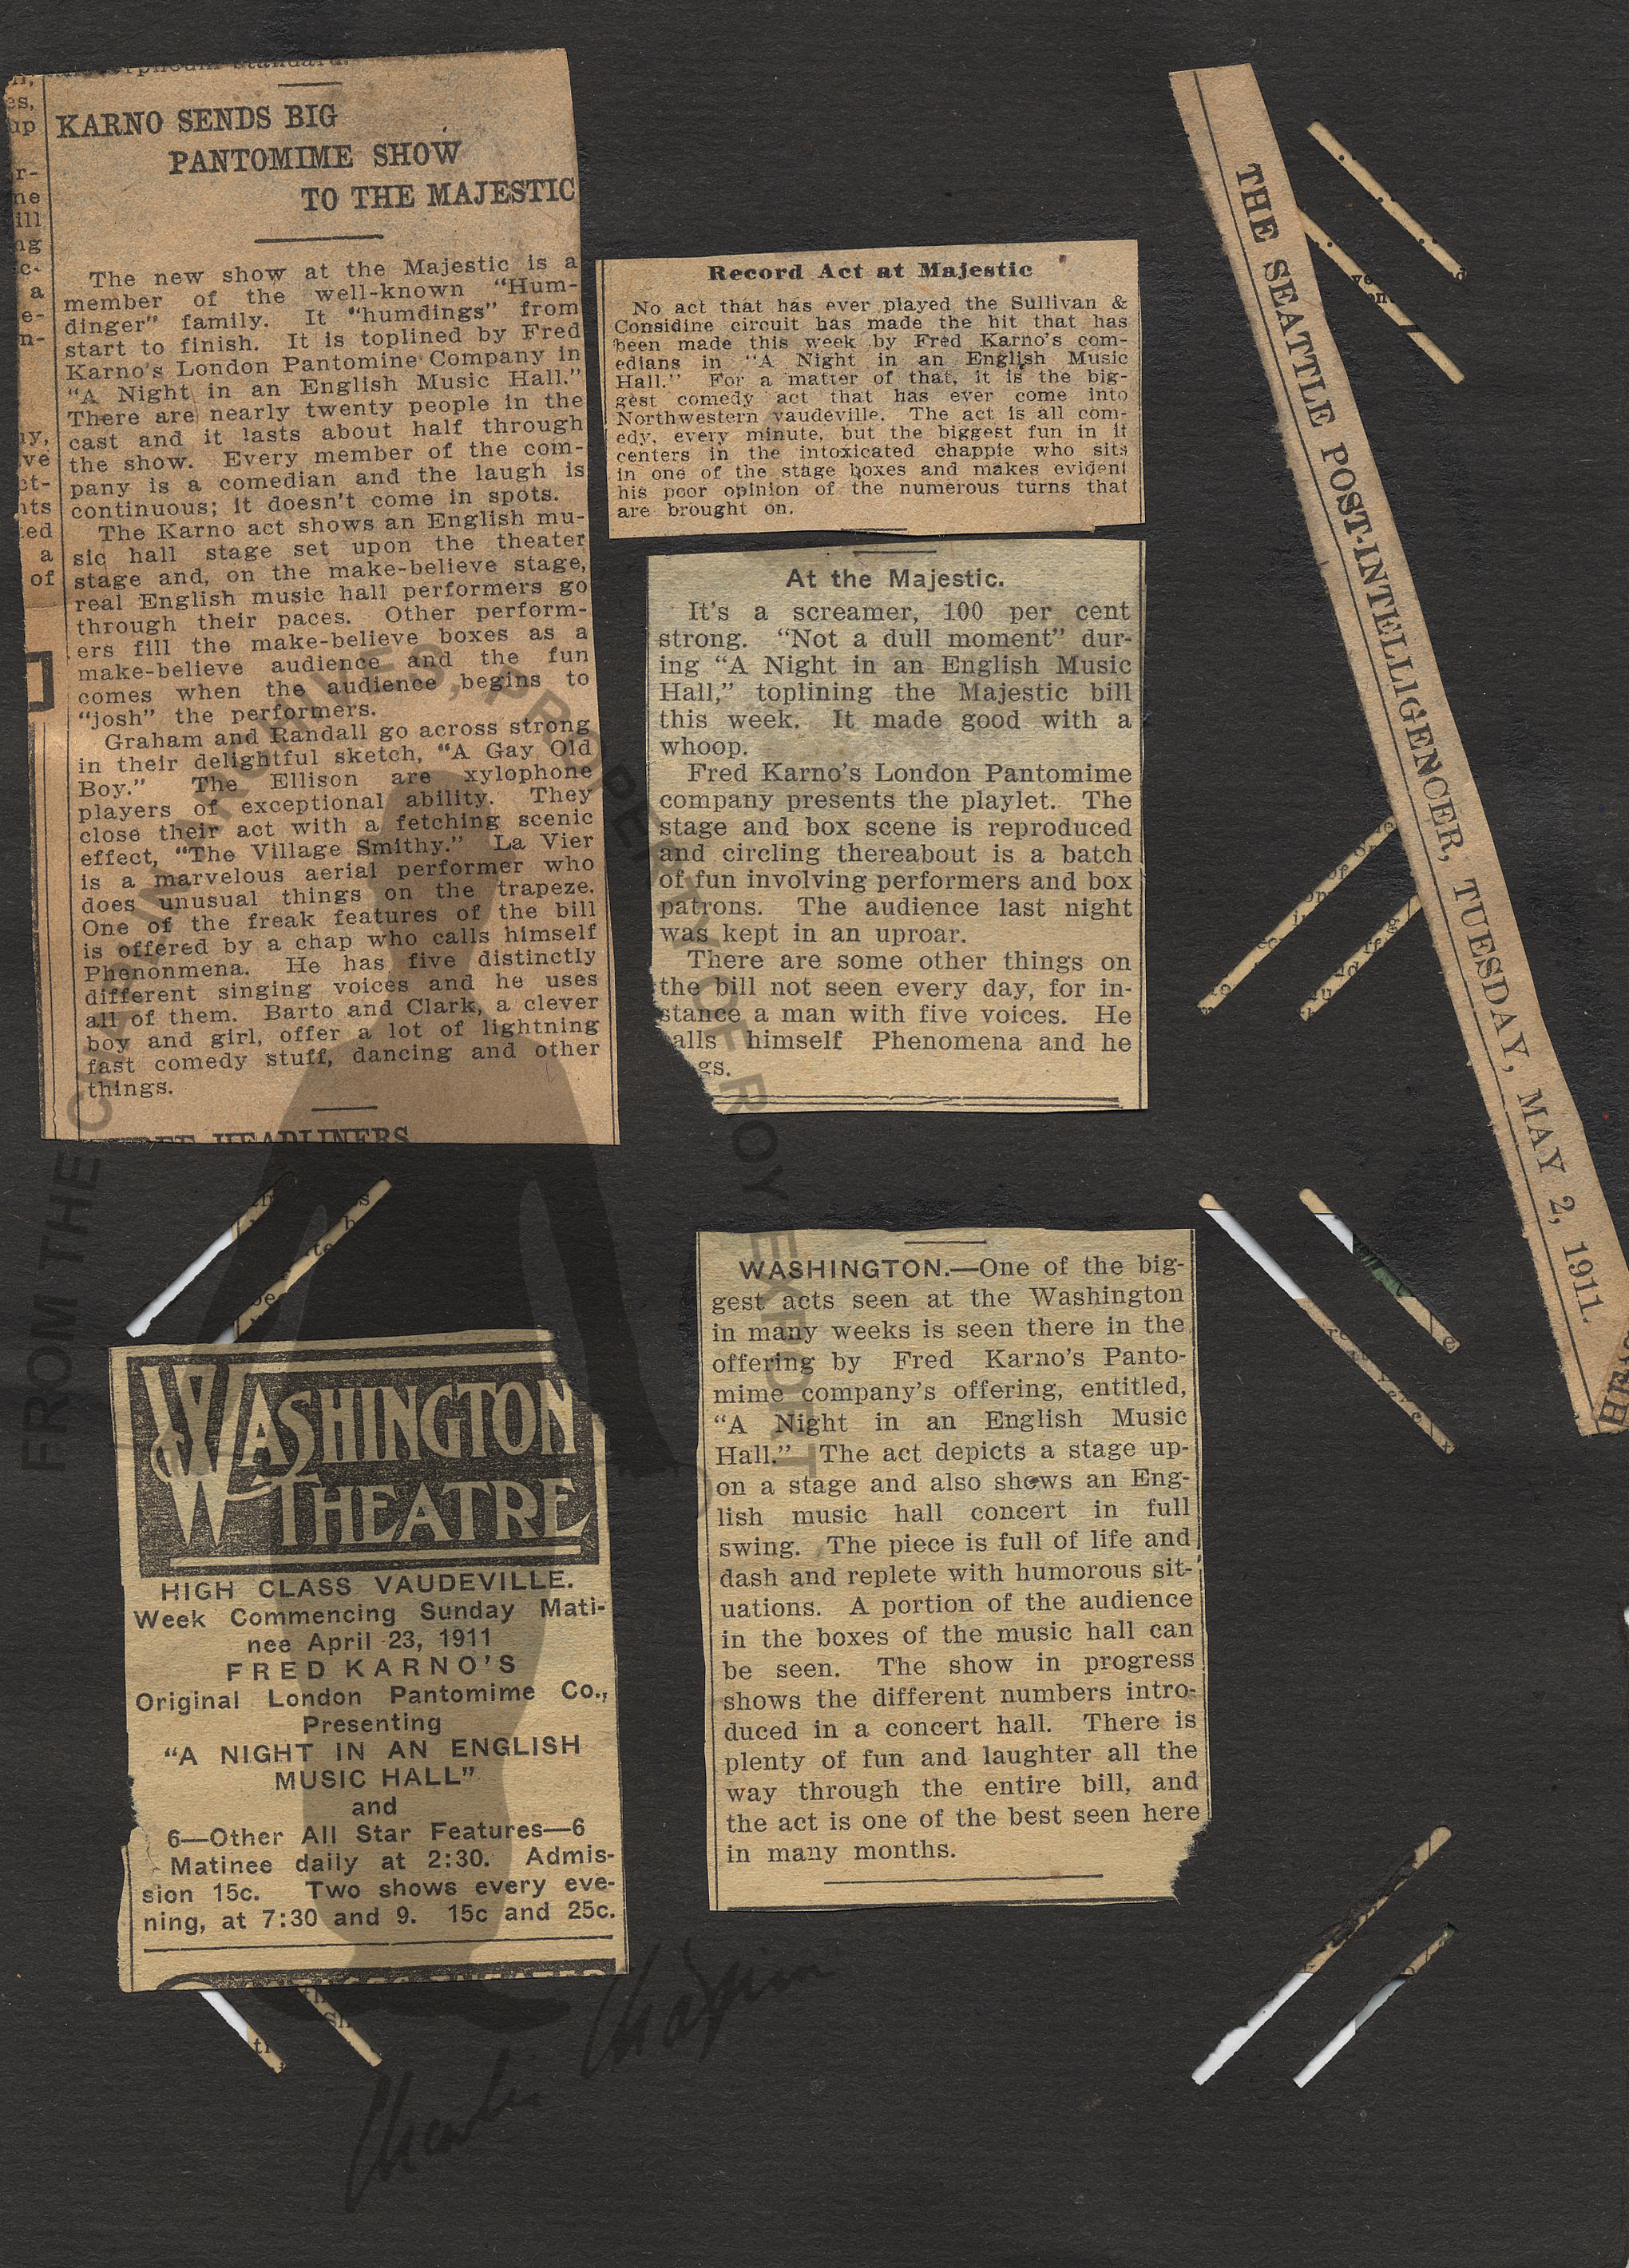 KARNO SENDS BIG
PANTOMIME SHOW
TO THE MAJESTIC
The new show at the Majestic is a
member of the well-known “Hum-
dinger” family. It “humdings” from
start to finish. It is toplined by Fred
Karno’s London Pantomine Company in
“A Night in an English Music Hall.”
There are nearly twenty people in the
cast and it lasts about half through
the show. Every member of the com-
pany is a comedian and the laugh is
continuous; it doesn’t come in spots.
The Karno act shows an English mu-
sic hall stage set upon the theater
stage and, on the make-believe stage,
real English music hall performers go
through their paces. Other perform-
ers fill the make-believe boxes as a
make-believe audience and the fun
comes when the audience begins to
“josh” the performers.
Graham and Randall go across strong
in their delightful sketch, “A Gay Old
Boy.” The Ellison are xylophone
players of exceptional ability. They
close their act with a fetching scenic
effect, “The Village Smithy.” La Vier
is a marvelous aerial performer who
does unusual things on the trapeze.
One of the freak features of the bill
is offered by a chap who calls himself
Phenonmena. He has five distinctly
different singing voices and he uses
all of them. Barto and Clark, a clever
boy and girl, offer a lot of lightning
fast comedy stuff, dancing and other
things.
HEADLINERS
Record Act at Majestic
No act that has ever played the Sullivan &
Considine circuit has made the hit that has
been made this week by Fred Karno’s com-
edians in “A Night in an English Music
Hall.” For a matter of that, it is the big-
gest comedy act that has ever come into
Northwestern vaudeville. The act is all com-
edy, every minute, but the biggest fun in it
centers in the intoxicated chappie who sits
in one of the stage boxes and makes evident
his poor opinion of the numerous turns that
are brought on.
At the Majestic.
It’s a screamer, 100 per cent
strong. “Not a dull moment” dur-
ing “A Night in an English Music
Hall,” toplining the Majestic bill
this week. It made good with a
whoop.
Fred Karno’s London Pantomime
company presents the playlet. The
stage and box scene is reproduced
and circling thereabout is a batch
of fun involving performers and box
patrons. The audience last night
was kept in an uproar.
There are some other things on
the bill not seen every day, for in-
stance a man with five voices. He
alls himself Phenomena and he
gs.
THE SEATTLE POST-INTELLIGENCER, TUESDAY, MAY 2, 1911.
WASHINGTON THEATRE
HIGH CLASS VAUDEVILLE.
Week Commencing Sunday Mati-
nee April 23, 1911
FRED KARNO’S
Original London Pantomime Co.,
Presenting
“A NIGHT IN AN ENGLISH
MUSIC HALL”
and
6—Other All Star Features—6
Matinee daily at 2:30. Admis-
sion 15c. Two shows every eve-
ning, at 7:30 and 9. 15c and 25c.
WASHINGTON.—One of the big-
gest acts seen at the Washington
in many weeks is seen there in the
offering by Fred Karno’s Panto-
mime company’s offering, entitled,
“A Night in an English Music
Hall.” The act depicts a stage up-
on a stage and also shows an Eng-
lish music hall concert in full
swing. The piece is full of life and
dash and replete with humorous sit-
uations. A portion of the audience
in the boxes of the music hall can
be seen. The show in progress
shows the different numbers intro-
duced in a concert hall. There is
plenty of fun and laughter all the
way through the entire bill, and
the act is one of the best seen here
in many months.
FROM THE CHAPLIN ARCHIVES, PROPERTY OF ROY EXPORT
Charlie Chaplin